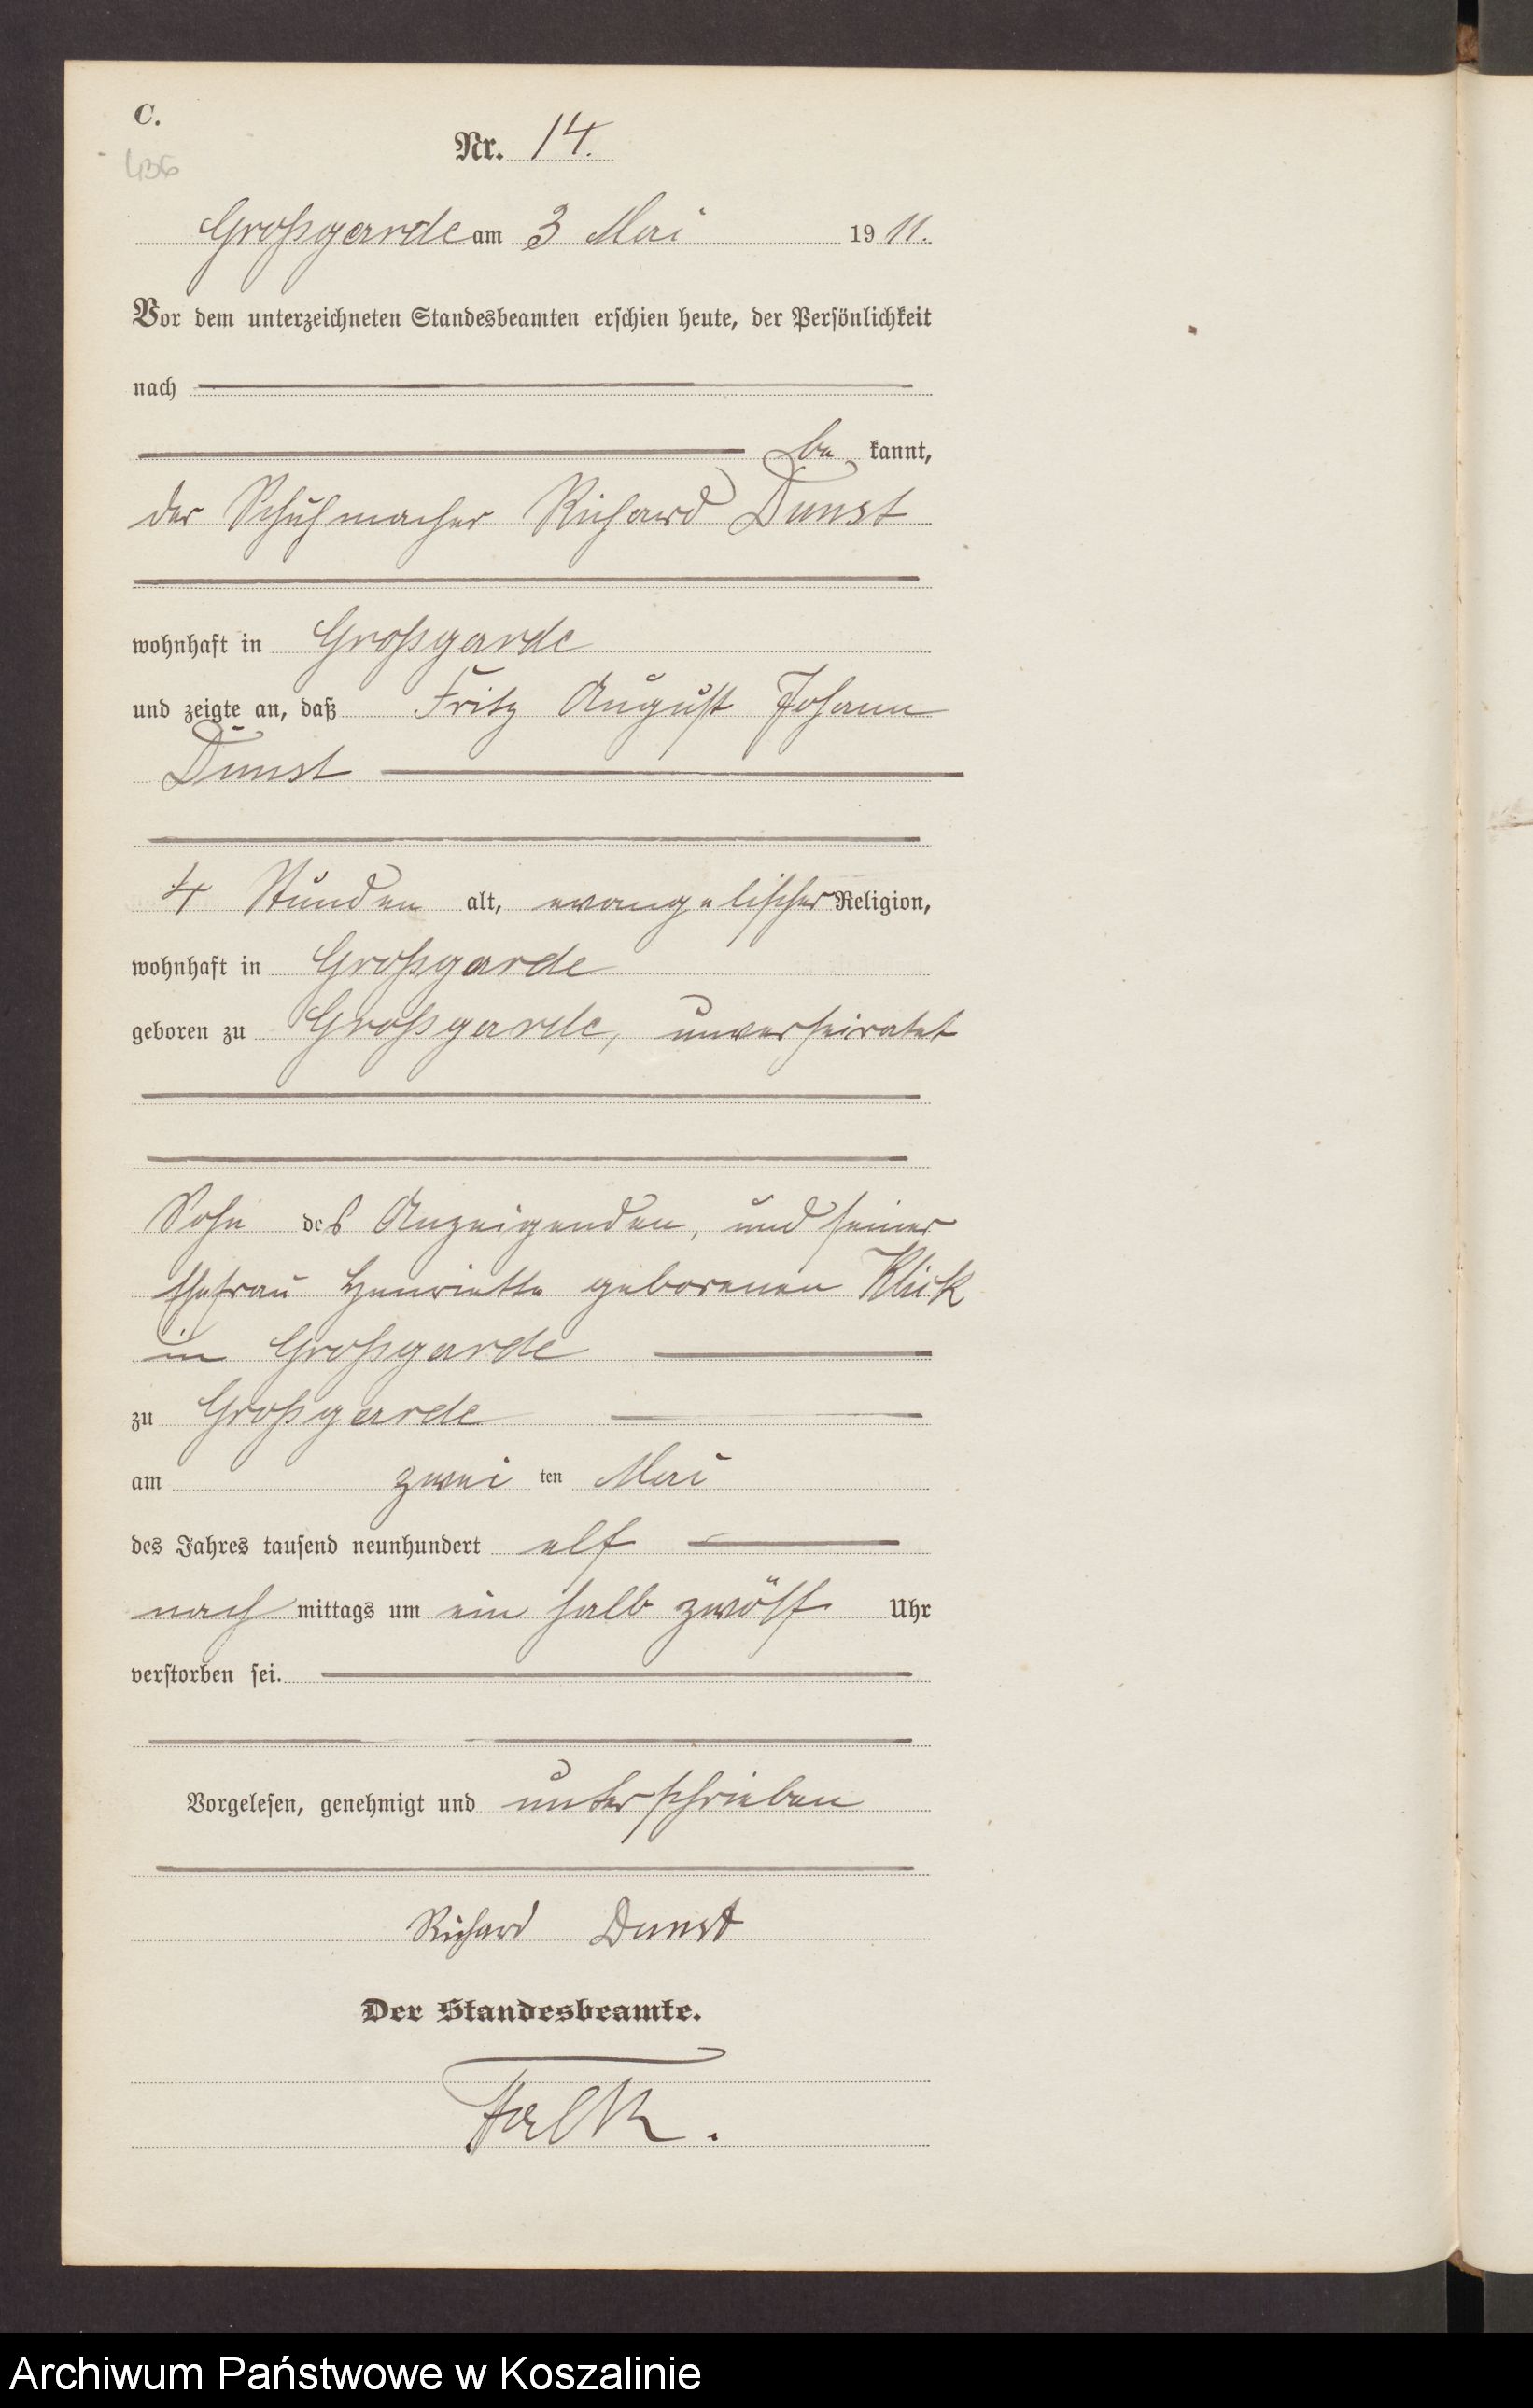 C.
Nr. 14.
Großgarde am 3 Mai 1911.
Vor dem unterzeichneten Standesbeamten erschien heute, der Persönlichkeit
nach
be kannt,
der Schuhmacher Richard Dunst
wohnhaft in Großgarde
und zeigte an, daß Fritz August Johann
Dunst
4 Stunden alt, evangelischer Religion,
wohnhaft in Großgarde
geboren zu Großgarde, unverheiratet
Sohn des Anzeigenden, und seiner
Ehefrau Henriette geborenen Klick
in Großgarde
zu Großgarde
am zwei ten Mai
des Jahres tausend neunhundert elf
nach mittags um ein halb zwölf Uhr
verstorben sei.
Vorgelesen, genehmigt und unterschrieben
Richard Dunst
Der Standesbeamte.
Falk.
Archiwum Państwowe w Koszalinie